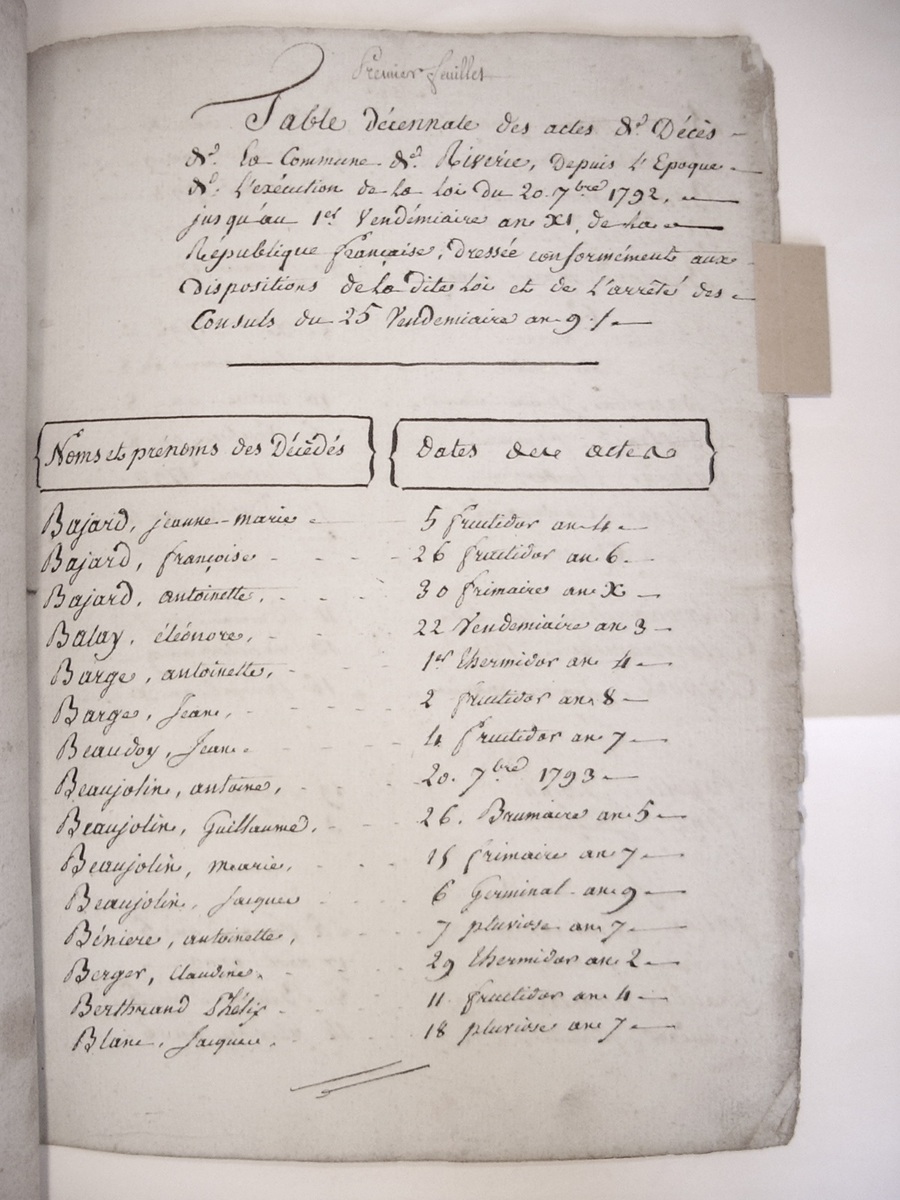 Premier feuillet
Table décennale des actes de Décès
de la Commune de Riverie, Depuis l'Epoque
de l'exécution de la loi du 20 7bre 1792,
jusqu'au 1er Vendémiaire an XI, de la
République française, dressée conformément aux
Dispositions de la dite loi et de l'arrêté des
Consuls du 25 Vendemiaire an 9 ./.
Noms et prénoms des Décédés
Dates des actes
Bajard, jeanne-marie 5 fructidor an 4
Bajard, françoise 26 fructidor an 6
Bajard, antoinette, 30 frimaire an X
Balay, éléonore, 22 Vendemiaire an 3
Barge, antoinette, 1er thermidor an 4
Barge, Jean, 2 fructidor an 8
Beaudoy, Jean 4 fructidor an 7
Beaujolin, antoine, 20. 7bre 1793
Beaujolin, Guillaume, 26. Brumaire an 5
Beaujolin, marie, 15 frimaire an 7
Beaujolin, Jacques 6 Germinal an 9
Béniere, antoinette, 7 pluviose an 7
Berger, Claudine, 29 thermidor an 2
Berthrand Phélix 11 fructidor an 4
Blanc, Jacques, 18 pluviose an 7